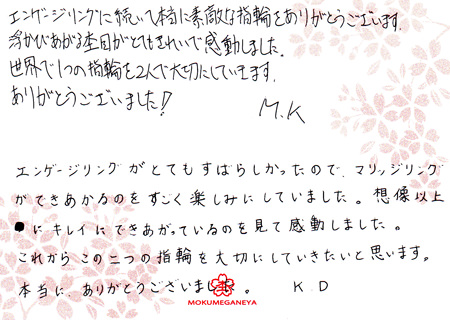 エンゲージリングに続いて本当に素敵な指輪をありがとうございます.
浮かびあがる杢目がとてもきれいで感動しました.
世界で1つの指輪を2人で大切にしていきます.
ありがとうございました!
M.K
エンゲージリングがとてもすばらしかったので、マリッジリング
ができあがるのをすごく楽しみにしていました。想像以上
にキレイにできあがっているのを見て感動しました。
これからこの二つの指輪を大切にしていきたいと思います。
本当に、ありがとうございました。 K.D
MOKUMEGANEYA